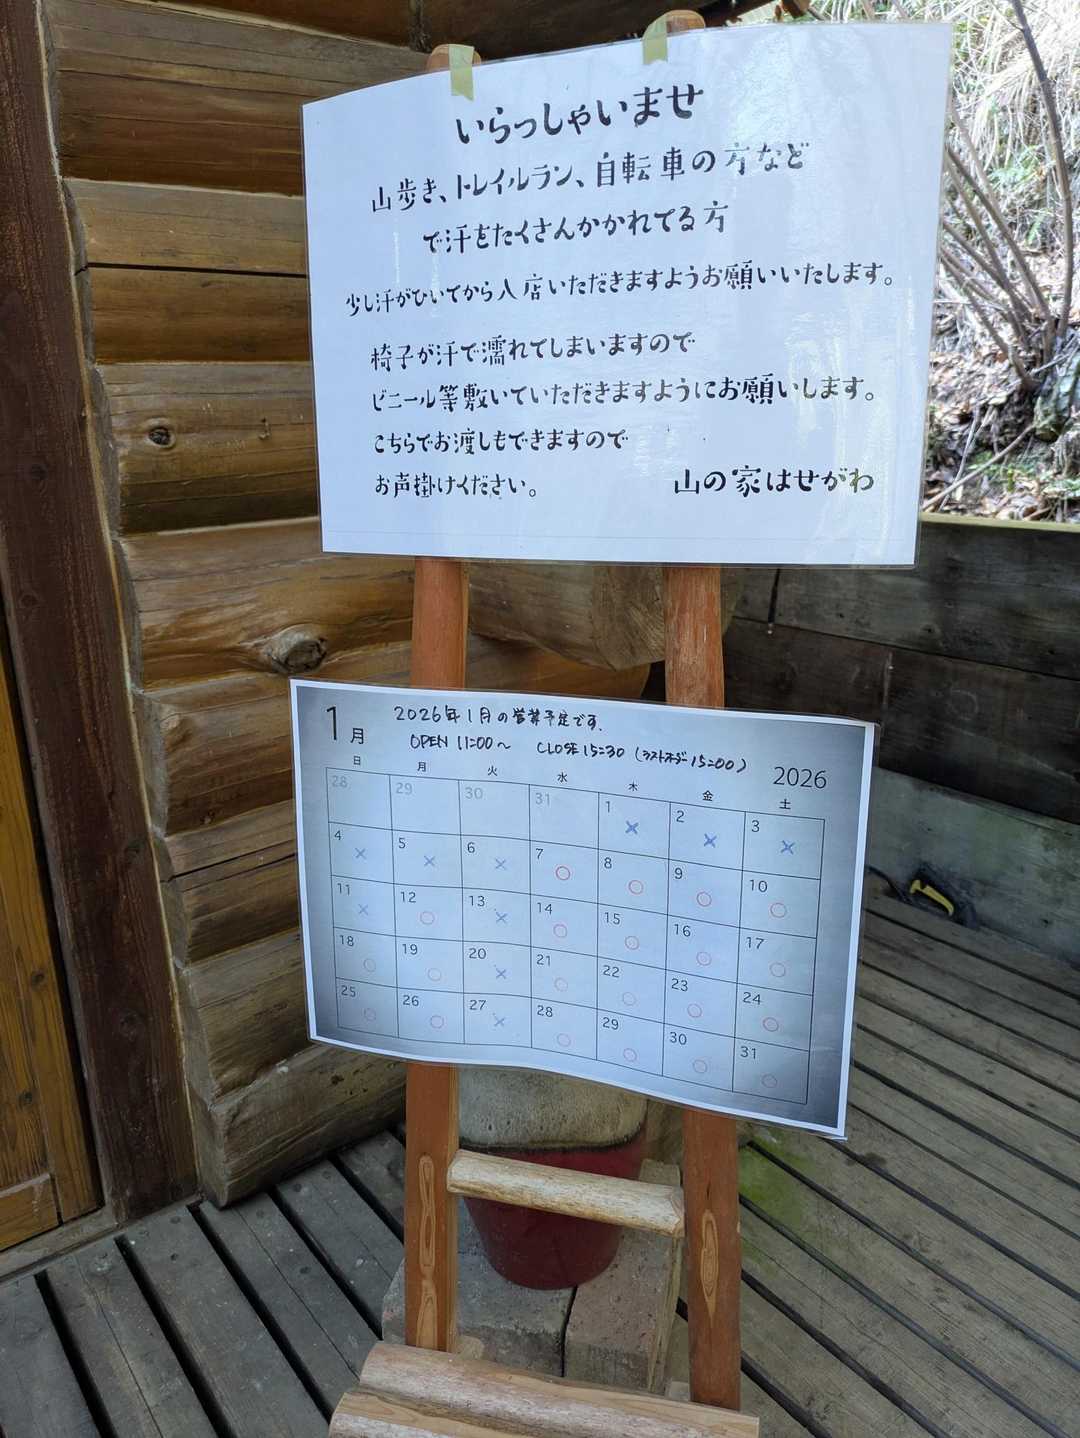 いらっしゃいませ
山歩き、トレイルラン、自転車の方など
で汗をたくさんかかれてる方
少し汗がひいてから入店いただきますようお願いいたします。
椅子が汗で濡れてしまいますので
ビニール等敷いていただきますようにお願いします。
こちらでお渡しもできますので
お声掛けください。
山の家はせがわ
1月
2026年1月の営業予定です.
OPEN 11:00～ CLOSE 15:30 (ラストオーダー 15:00)
2026
日 月 火 水 木 金 土
28 29 30 31 1 2 3
× × ×
4 5 6 7 8 9 10
× × × ○ ○ ○ ○
11 12 13 14 15 16 17
× ○ × ○ ○ ○ ○
18 19 20 21 22 23 24
○ ○ × ○ ○ ○ ○
25 26 27 28 29 30 31
○ ○ × ○ ○ ○ ○